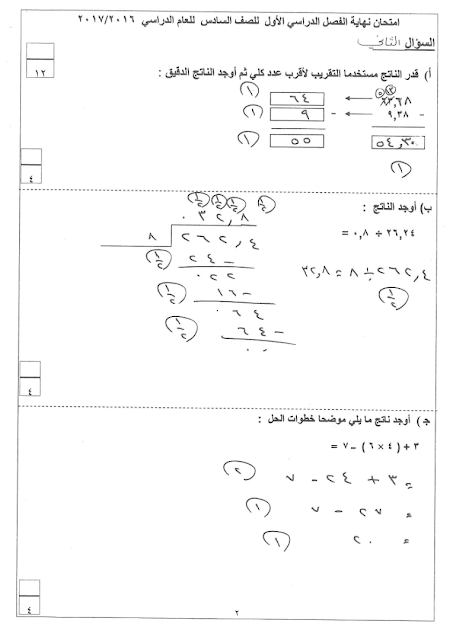 امتحان نهاية الفصل الدراسي الأول للصف السادس للعام الدراسي ٢٠١٧/٢٠١٦
السؤال الثاني
١٢
أ) قدر الناتج مستخدما التقريب لأقرب عدد كلي ثم أوجد الناتج الدقيق :
٦٤ ← ٦٣,٦٨ ①
٩ ← ٩,٣٨ - ①
٥٥ ٥٤,٣٠ ①
①
٤
ب) أوجد الناتج :
٢٦,٢٤ ÷ ٠,٨ =
٢٦٢,٤ ÷ ٨ = ٣٢,٨
٠٣٢,٨
٨ ٢٦٢,٤
٢٤ -
٠٢٢
١٦ -
٠٦٤
٦٤ -
٠٠
٤
ج) أوجد ناتج ما يلي موضحا خطوات الحل :
٣ + (٤ × ٦) – ٧ =
= ٣ + ٢٤ - ٧ ②
= ٢٧ - ٧ ①
= ٢٠ ①
٤
٢